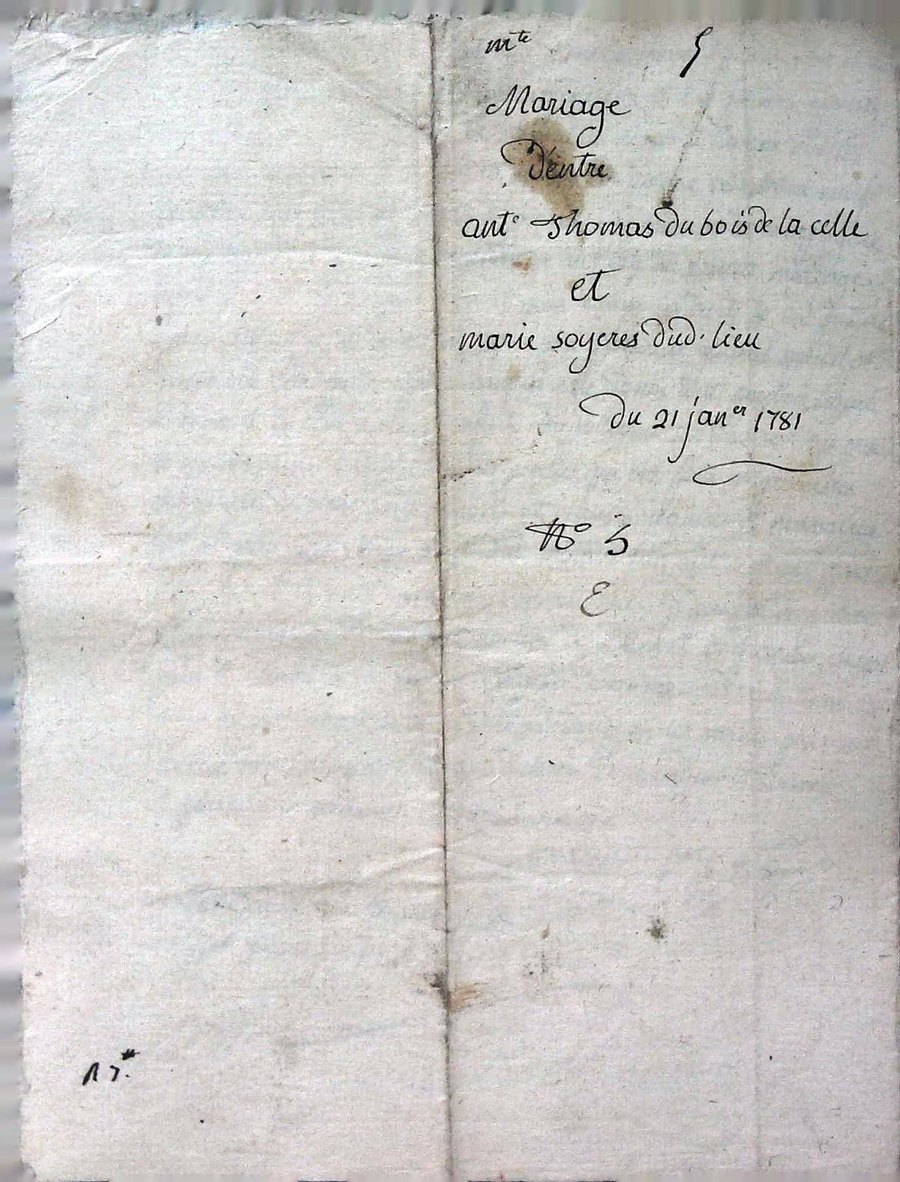 mte 5
Mariage
D'entre
ante Thomas du bois de la celle
et
marie soyeres dud. lieu
du 21 janer 1781
No 5
E